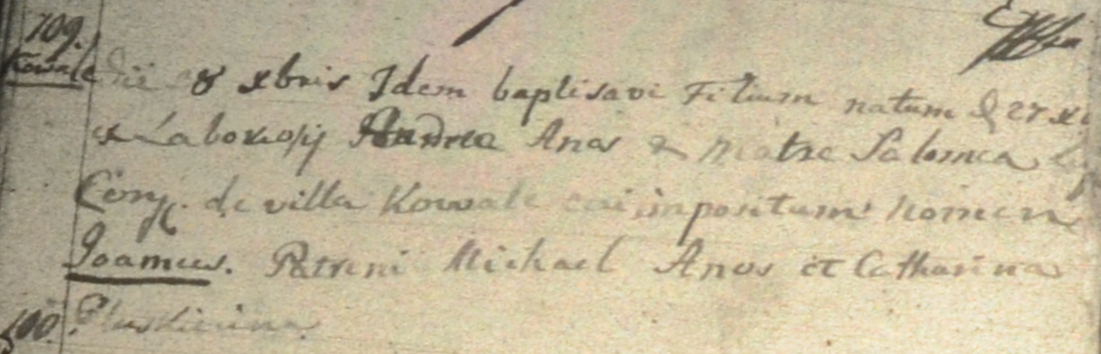 109.
Kowale Die 28 xbris Idem baptisavi Filium natum d 27 x
ex Laboriosij Andrea Anos & Matre Salomea
Conj. de villa Kowale cui impositum Nomen
Joannes. Patrini Michael Anos et Catharina
100.